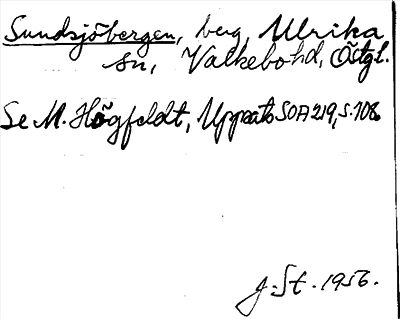 Sundsjöbergen, berg, Ulrika
sn, Valkebohd, Östgl.
Se M. Högfeldt, Uppsats SOA 219, s. 108
J. St. 1956.